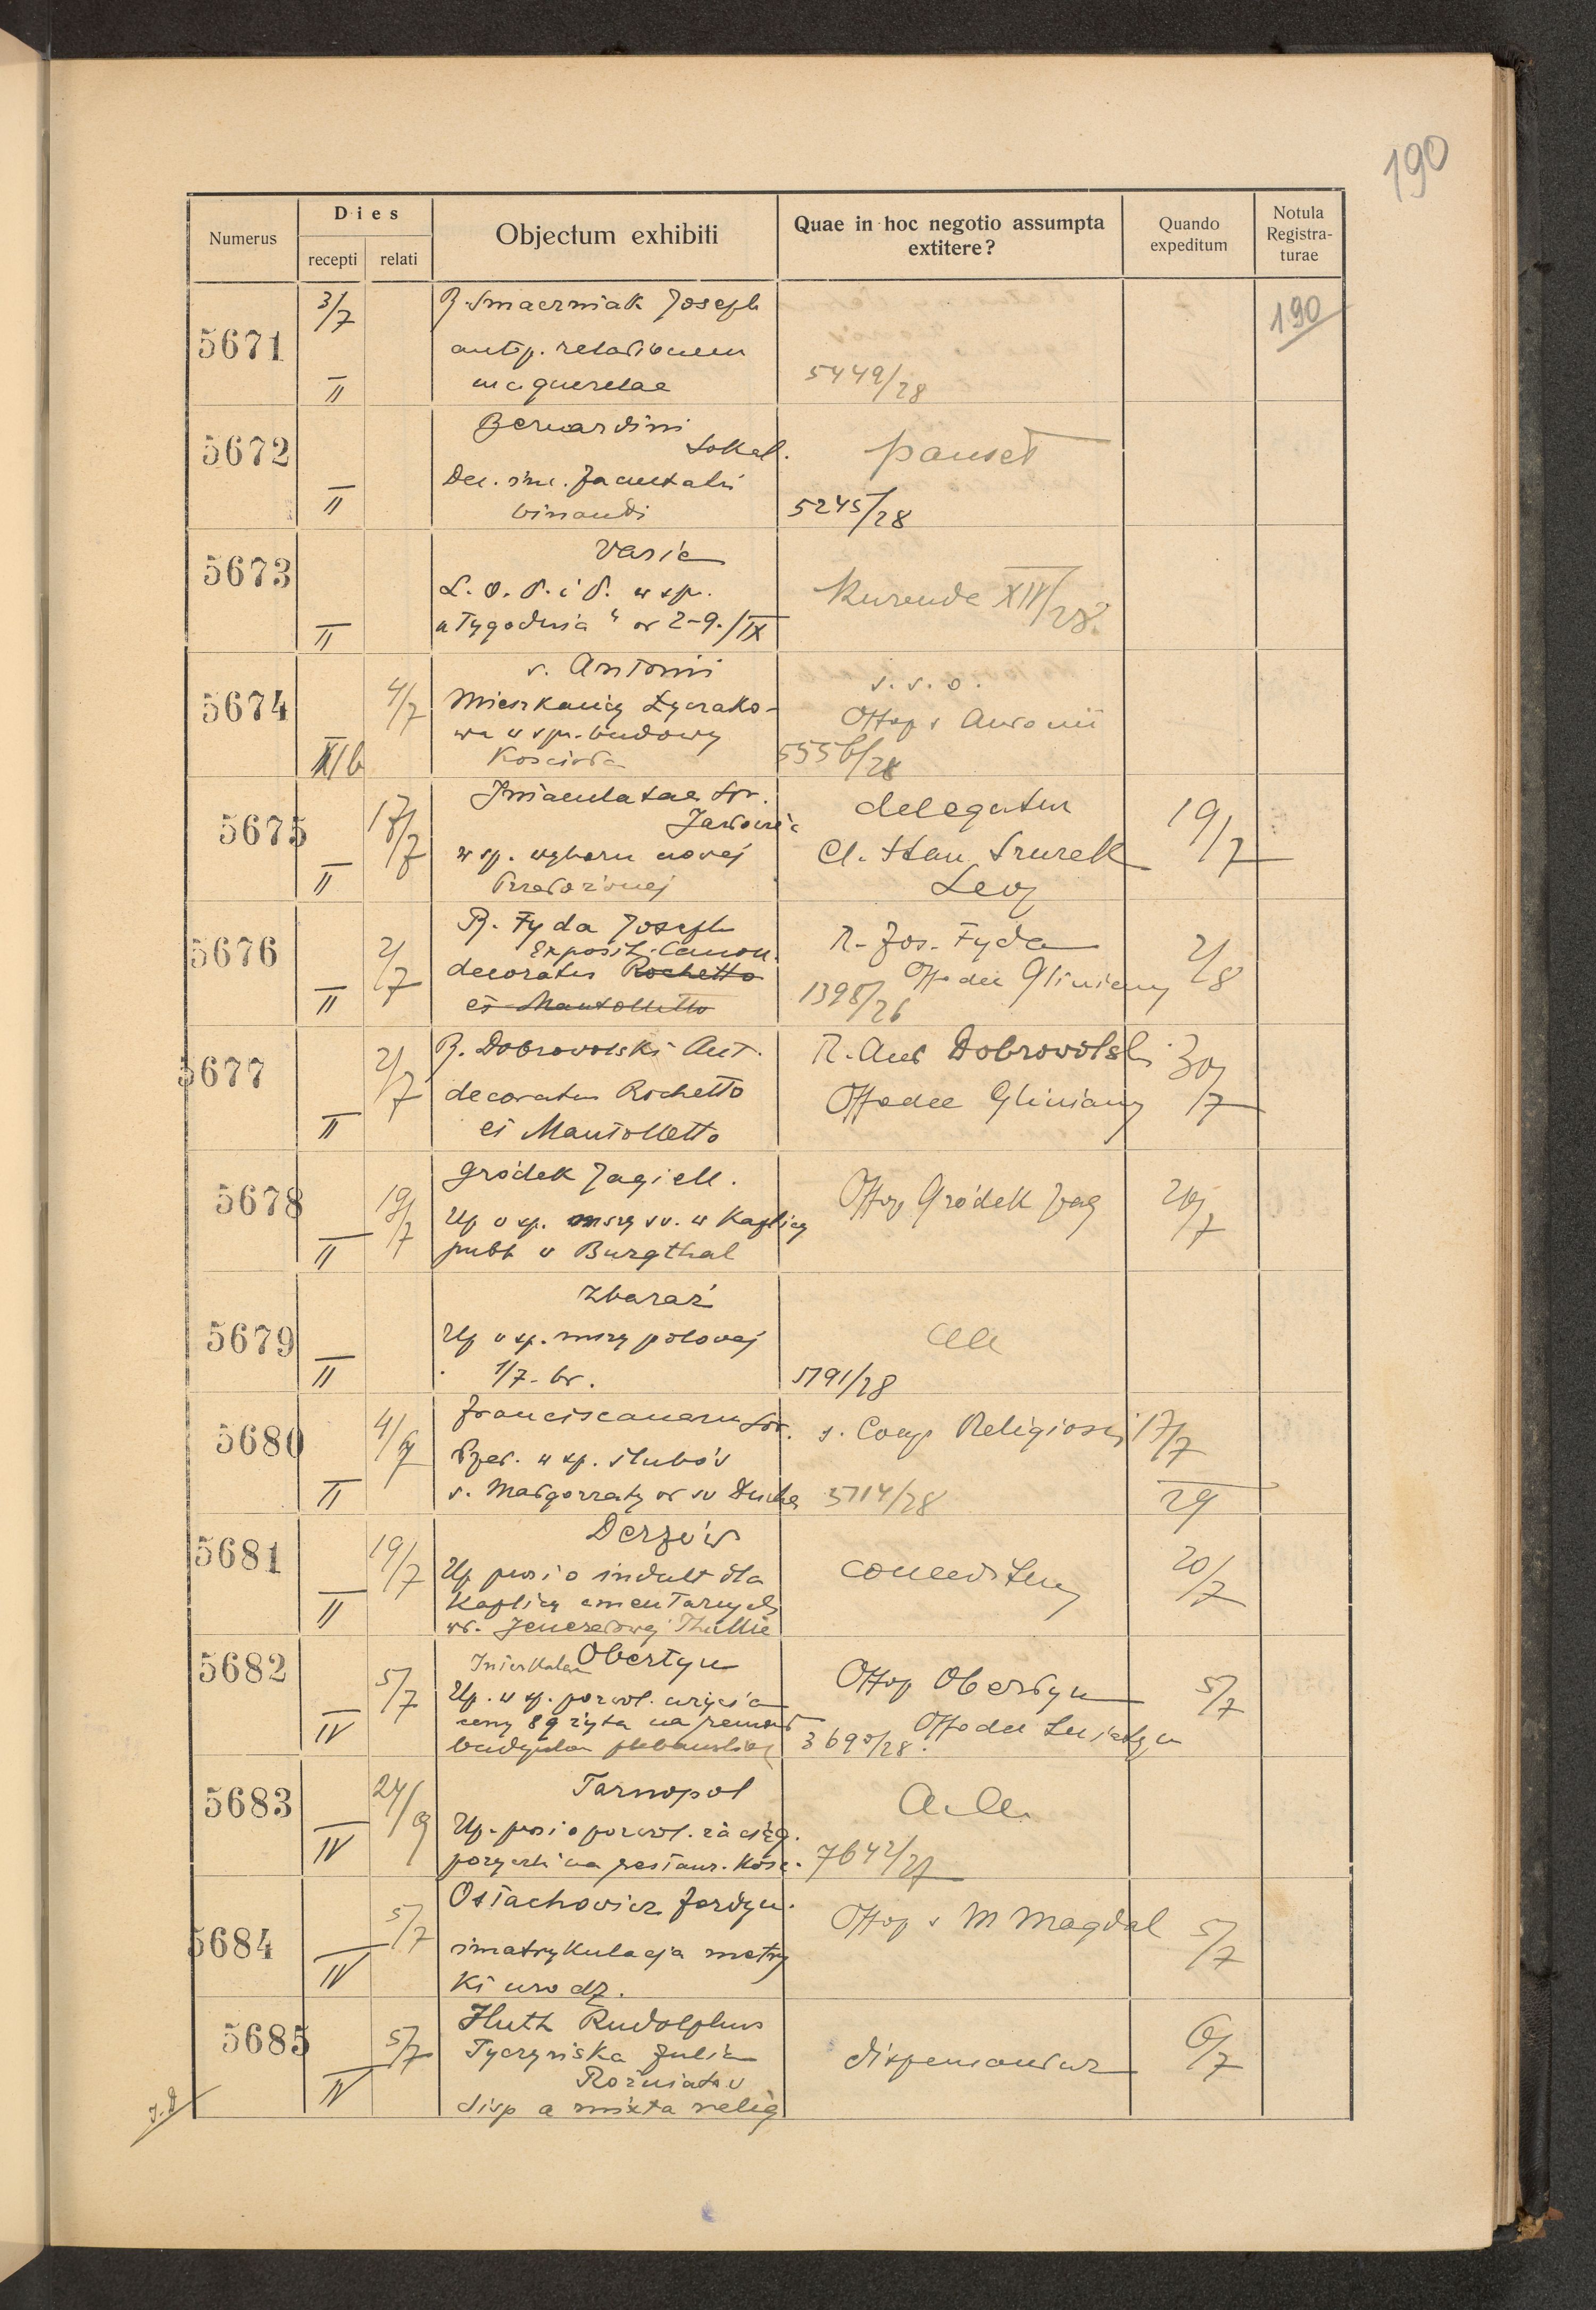 190
Numerus
Dies
recepti
relati
Objectum exhibiti
Quae in hoc negotio assumpta extitere?
Quando expeditum
Notula Registra-turae
5671
3/7
II
Joseph
antp. relationem
querelae
5449/28
190
5672
II
Bernardini
Sokal.
binandi
5245/28
5673
II
Varia
L. O. P. i P. w sp.
"Tygodnia" or 2-9./IX
Kurenda XIV/28.
5674
4/7
XIb
s. Antonii
Mieszkańcy Łyczako-
wa w spr. budowy
Kościoła
s. s. o.
Offop s Antonii
5556/28
5675
17/7
II
Imaculatae Sor.
Jarłowiec
w sp. wyboru nowej
Przełożonej
delegatur
Cl. Stan Szurek
Leop
19/7
5676
2/7
II
R. Fyda Joseph
Exposit. Canon.
decoratur Rochetto
et Mantolletto
R. Jos. Fyda
Offo dec Gliniany
1398/26
2/8
5677
2/7
II
R. Dobrowolski Ant.
decoratur Rochetto
et Mantolletto
R. Ant Dobrowolski
Offo dec Gliniany
30/7
5678
19/7
II
Gródek Jagiell.
Up w sp. mszy sw. w Kaplicy
publ w Burgthal
Offop Gródek Jag
20/7
5679
II
Zbaraż
Up w sp. mszy polowej
1/7 - br.
aa
5791/28
5680
4/7
II
Franciscanarum Sor.
Przeł. w sp. ślubów
s. Małgorzaty or sw Ducha
s. Cong Religiosis
5714/28
17/7
29
5681
19/7
II
Derżów
Up prosi o indult dla
Kaplicy cmentarnych
wł. Jenerałowej Thullie
20/7
5682
5/7
IV
Interkalar Obertyn
Up. w sp. pozwol. użycia
ceny 89 żyta na remont
Offop Obertyn
Offo dec Sniatyn
3690/28.
5/7
5683
24/9
IV
Tarnopol
Up. prosi o pozwol. zaciąg.
pożyczki na restaur. Kośc.
a.a.
7642/27
5684
5/7
IV
Ostachowicz Ferdyn.
imatrykulacja metry
ki urodz.
Offop s M Magdal
5/7
5685
5/7
IV
Huth Rudolphus
Tyczyńska Julia
Rożniatów
disp a mixta relig
dispensantur
6/7